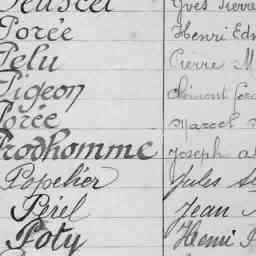 Yves Pierre
Porée Henri Edm
Pelu Pierre M
Pigeon Clément
Porée Marcel
Prodhomme Joseph
Popelier Jules
Pérel Jean
Poty Henri